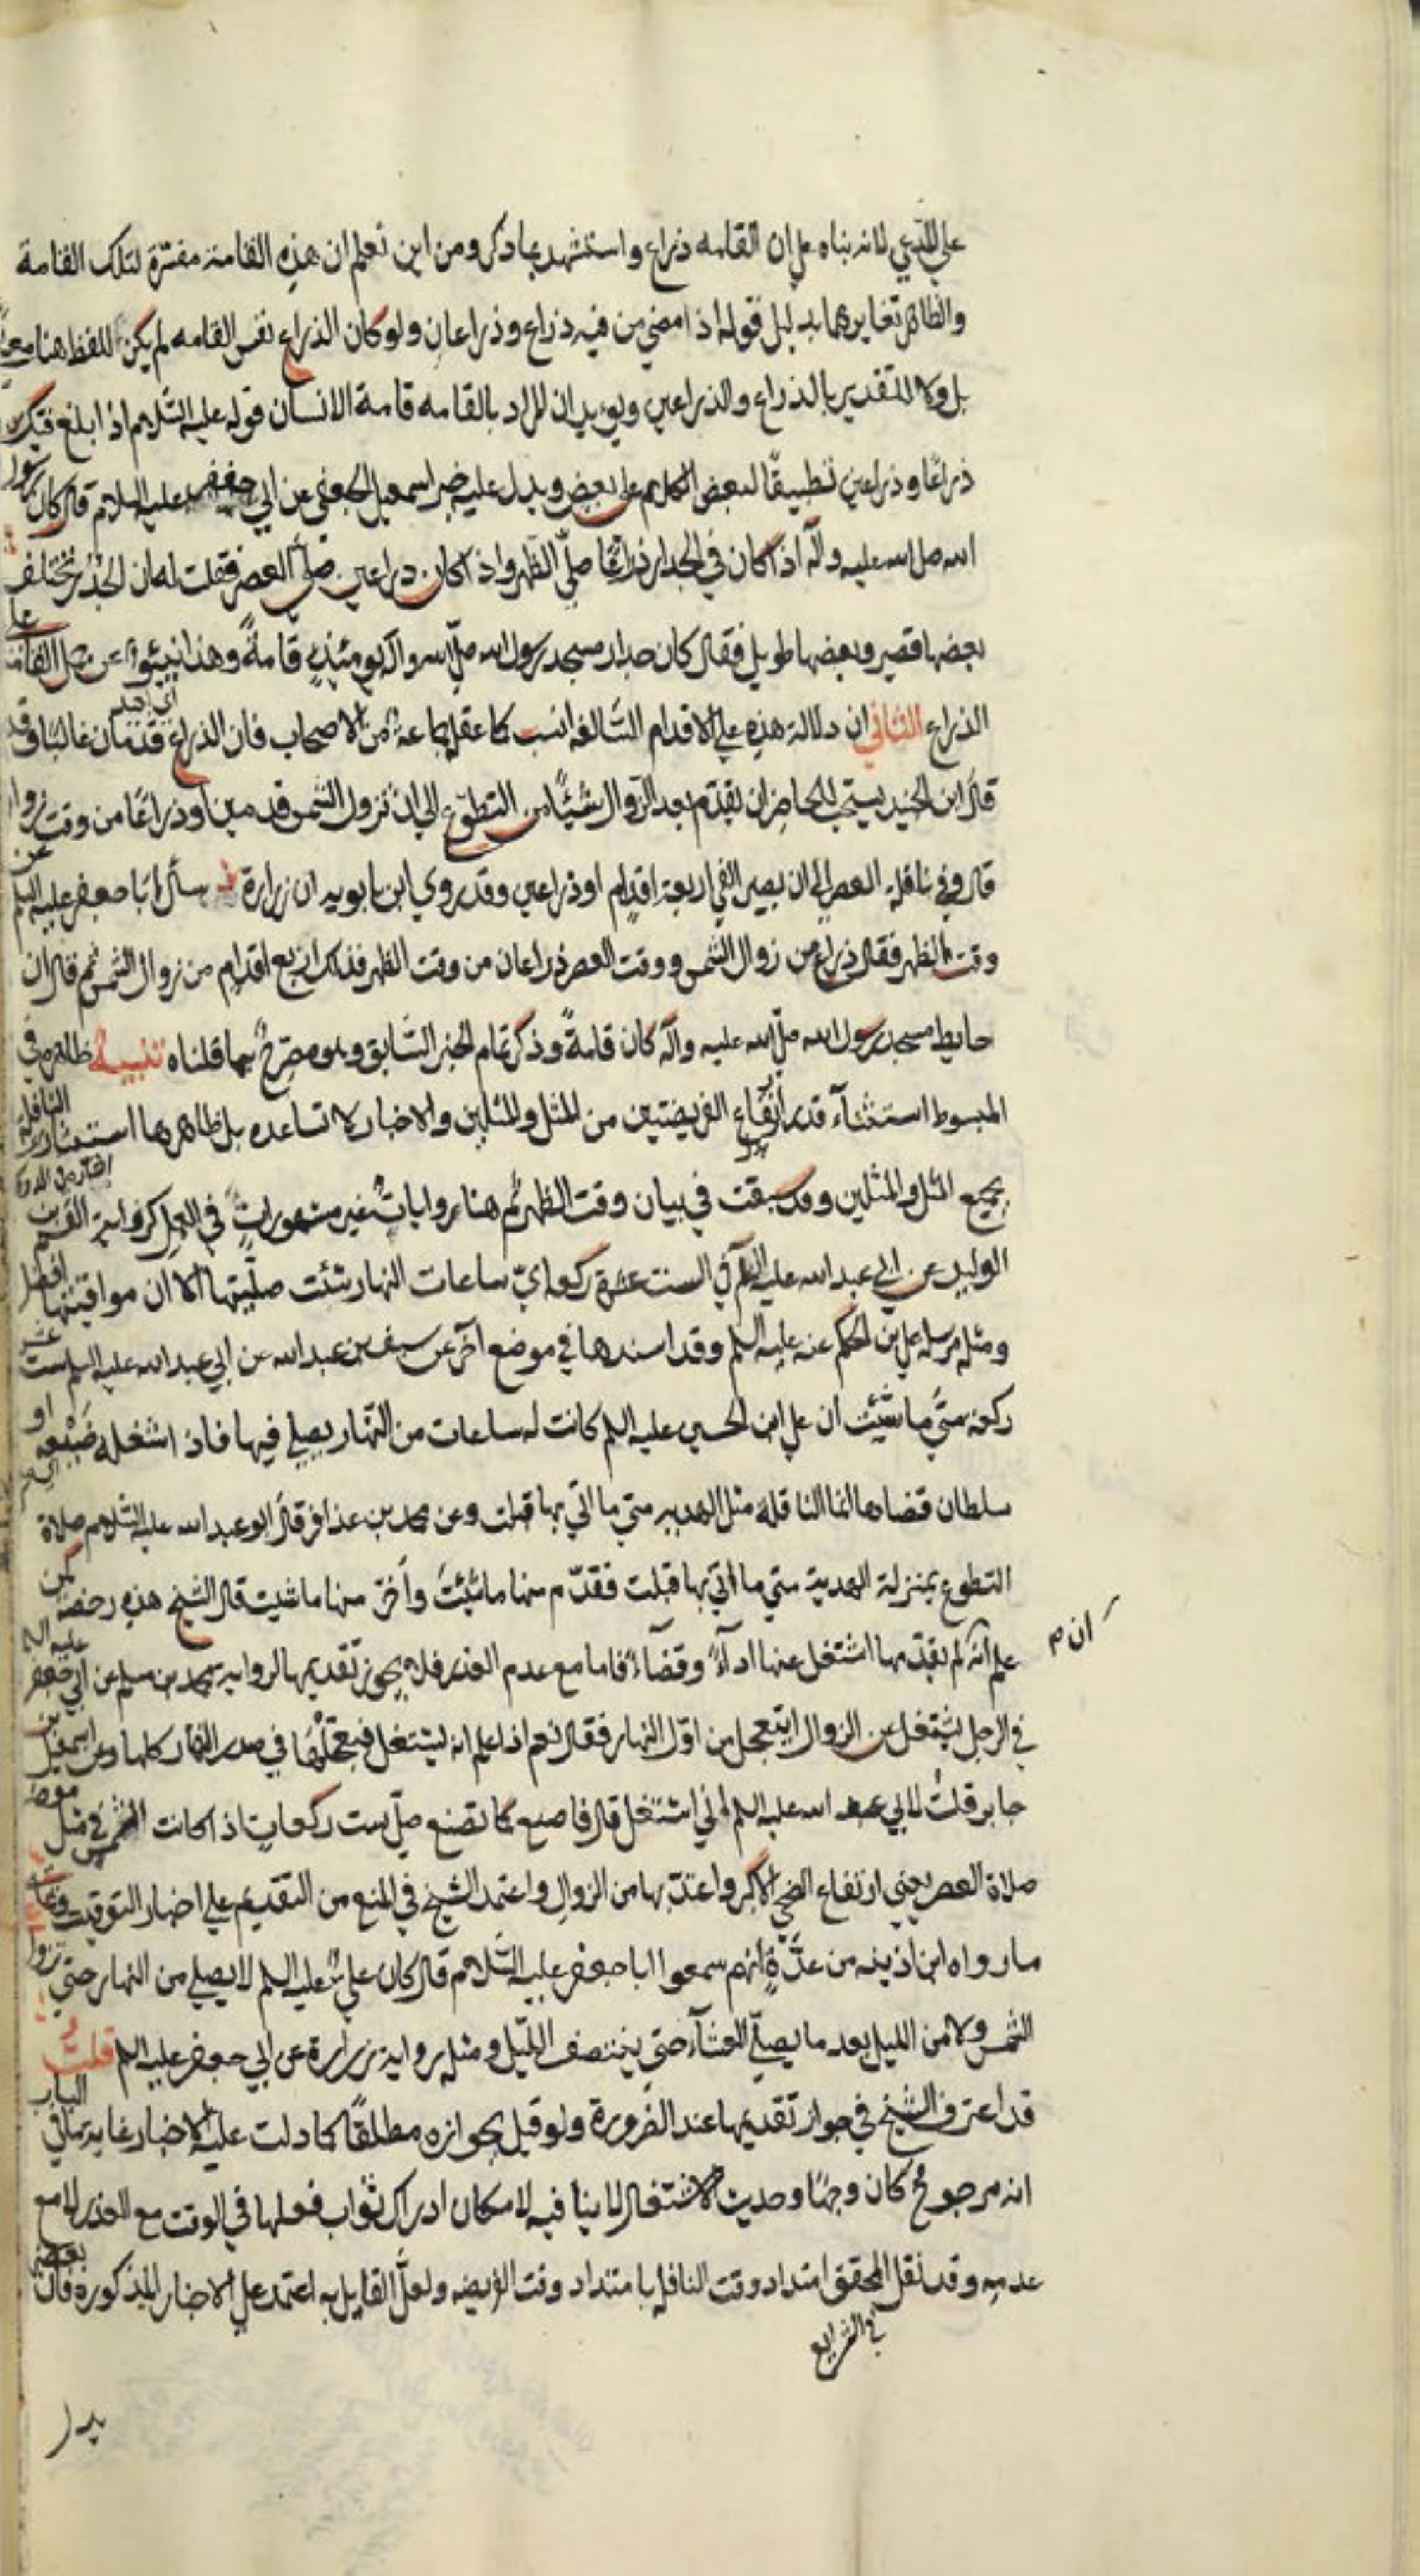 علي المدعي لانه بناه علي ان القامه ذراع واستشهد بما ذكر ومن اين تعلم ان هذه القامة مفسرة لتلك القامة
والظاهر تغايرهما بدليل قوله اذا مضي من فيه ذراع وذراعان ولو كان الذراع نفس القامه لم يكن اللفظ هنا معني
بل ولا للتقدير بالذراع والذراعين ويؤيد ان المراد بالقامه قامة الانسان قوله عليه السلام اذا بلغ فيئك
ذراعًا وذراعين تطبيقًا لبعض الكلام علي بعض ويدل عليه خبر اسمعيل الجعفي عن ابي جعفر عليه السلام قال كان رسول
الله صلي الله عليه وآله اذا كان في الجدار ذراعًا صلّي الظهر واذا كان ذراعين صلي العصر فقلت له ان الجدر تختلف
بعضها قصير وبعضها طويل فقال كان جدار مسجد رسول الله صلّي الله واله يومئذٍ قامةً وهذا ينبئ عن حمل القامة علي
الذراع الثاني ان دلالة هذه علي الاقدام السالفه انسب كما عقله جماعة من الاصحاب فان الذراع قدمان غالبًا وقد
قال ابن الجنيد يستحب للحاضر ان يقدّم بعد الزوال شيئًا من التطوّع الي ان تزول الشمس قدمين او ذراعًا من وقت زوالها
قال وفي نافلة العصر الي ان يصير الفي اربعة اقدام او ذراعين وقد روي ابن بابويه ان زرارة سأل ابا جعفر عليه السلم عن
وقت الظهر فقال ذراع من زوال الشمس ووقت العصر ذراعان من وقت الظهر فذلك اربع اقدام من زوال الشمس ثم قال ان
حايط مسجد رسول الله صلّي الله عليه وآله كان قامةً وذكر تمام الخبر السّابق وهو مصرحٌ بما قلناه تنبيه ظاهره في
المبسوط استثناء قدر ايقاع الفريضتين من المثل والمثلين والاخبار لا تساعده بل ظاهرها استيثار النافلة
بجميع المثل والمثلين وقد سبقت في بيان وقت الظهر ثم هنا رواياتٌ غير مشهوراتٍ في العمل كرواية القسم بن
الوليد عن ابي عبد الله عليه السلم في الست عشرة ركعة ايّ ساعات النهار شئت صلّيتها الا ان مواقيتها افضل
ومثله مرسله علي بن الحكم عنه عليه السلم وقد اسندها في موضع آخر عن سيف بن عبد الله عن ابي عبد الله عليه السلم ست عشرة
ركعة متي ما شئت ان علي ابن الحسين عليه السلم كانت له ساعات من النّهار يصلي فيها فاذا اشغله ضيعه او
سلطان قضاها انما النافلة مثل الهديه متي ما اتي بها قبلت وعن محمد بن عذافر قال ابو عبد الله عليه السّلام صلاة
التطوع بمنزلة الهدية متي ما اتي بها قبلت فقدّم منها ما شئت وأخّر منها ما شيت قال الشيخ هذه رخصه لمن
علم انّه ان لم يقدّمها اشتغل عنها اداءً وقضاءً فاما مع عدم العذر فلا يجوز تقديمها لرواية محمد بن مسلم عن ابي جعفر عليه السلم
في الرجل يشتغل عن الزوال ايتعجل من اوّل النهار فقال نعم اذا علم انه يشتغل فيتعجلها في صدر النهار كلها وعن اسمعيل بن
جابر قلتُ لابي عبد الله عليه السلم اني اشتغل قال فاصنع كما تصنع صلّ ست ركعات اذا كانت الشمس في مثل موضعها
صلاة العصر يعني ارتفاع الضحي الاكبر واعتدّ بها من الزوالِ واعتمد الشيخ في المنع من التقديم علي اخبار التوقيت وعلي
ما رواه ابن اذينه من عدّةٍ انهم سمعوا ابا جعفر عليه السّلام قال كان عليٌ عليه السلم لا يصلي من النهار حتي تزول
الشمس ولا من الليل بعد ما يصلّي العشاء حتي ينتصف اللّيل ومثله رواية زرارة عن ابي جعفر عليه السلم قلت
قد اعترف الشيخ في جواز تقديمها عند الضرورة ولو قيل بجوازه مطلقًا كما دلت عليه الاخبار غاية ما في الباب
انه مرجوحٌ كان وجهًا وحديث الاشتغال لا ينافيه لامكان ادراك ثواب فعلها في الوقت مع العذر لا مع
عدمه وقد نقل المحقق امتداد وقت النافله بامتداد وقت الفريضه ولعلّ القايل به اعتمد علي الاخبار المذكورة فان بعض
في الشرايع
ان م